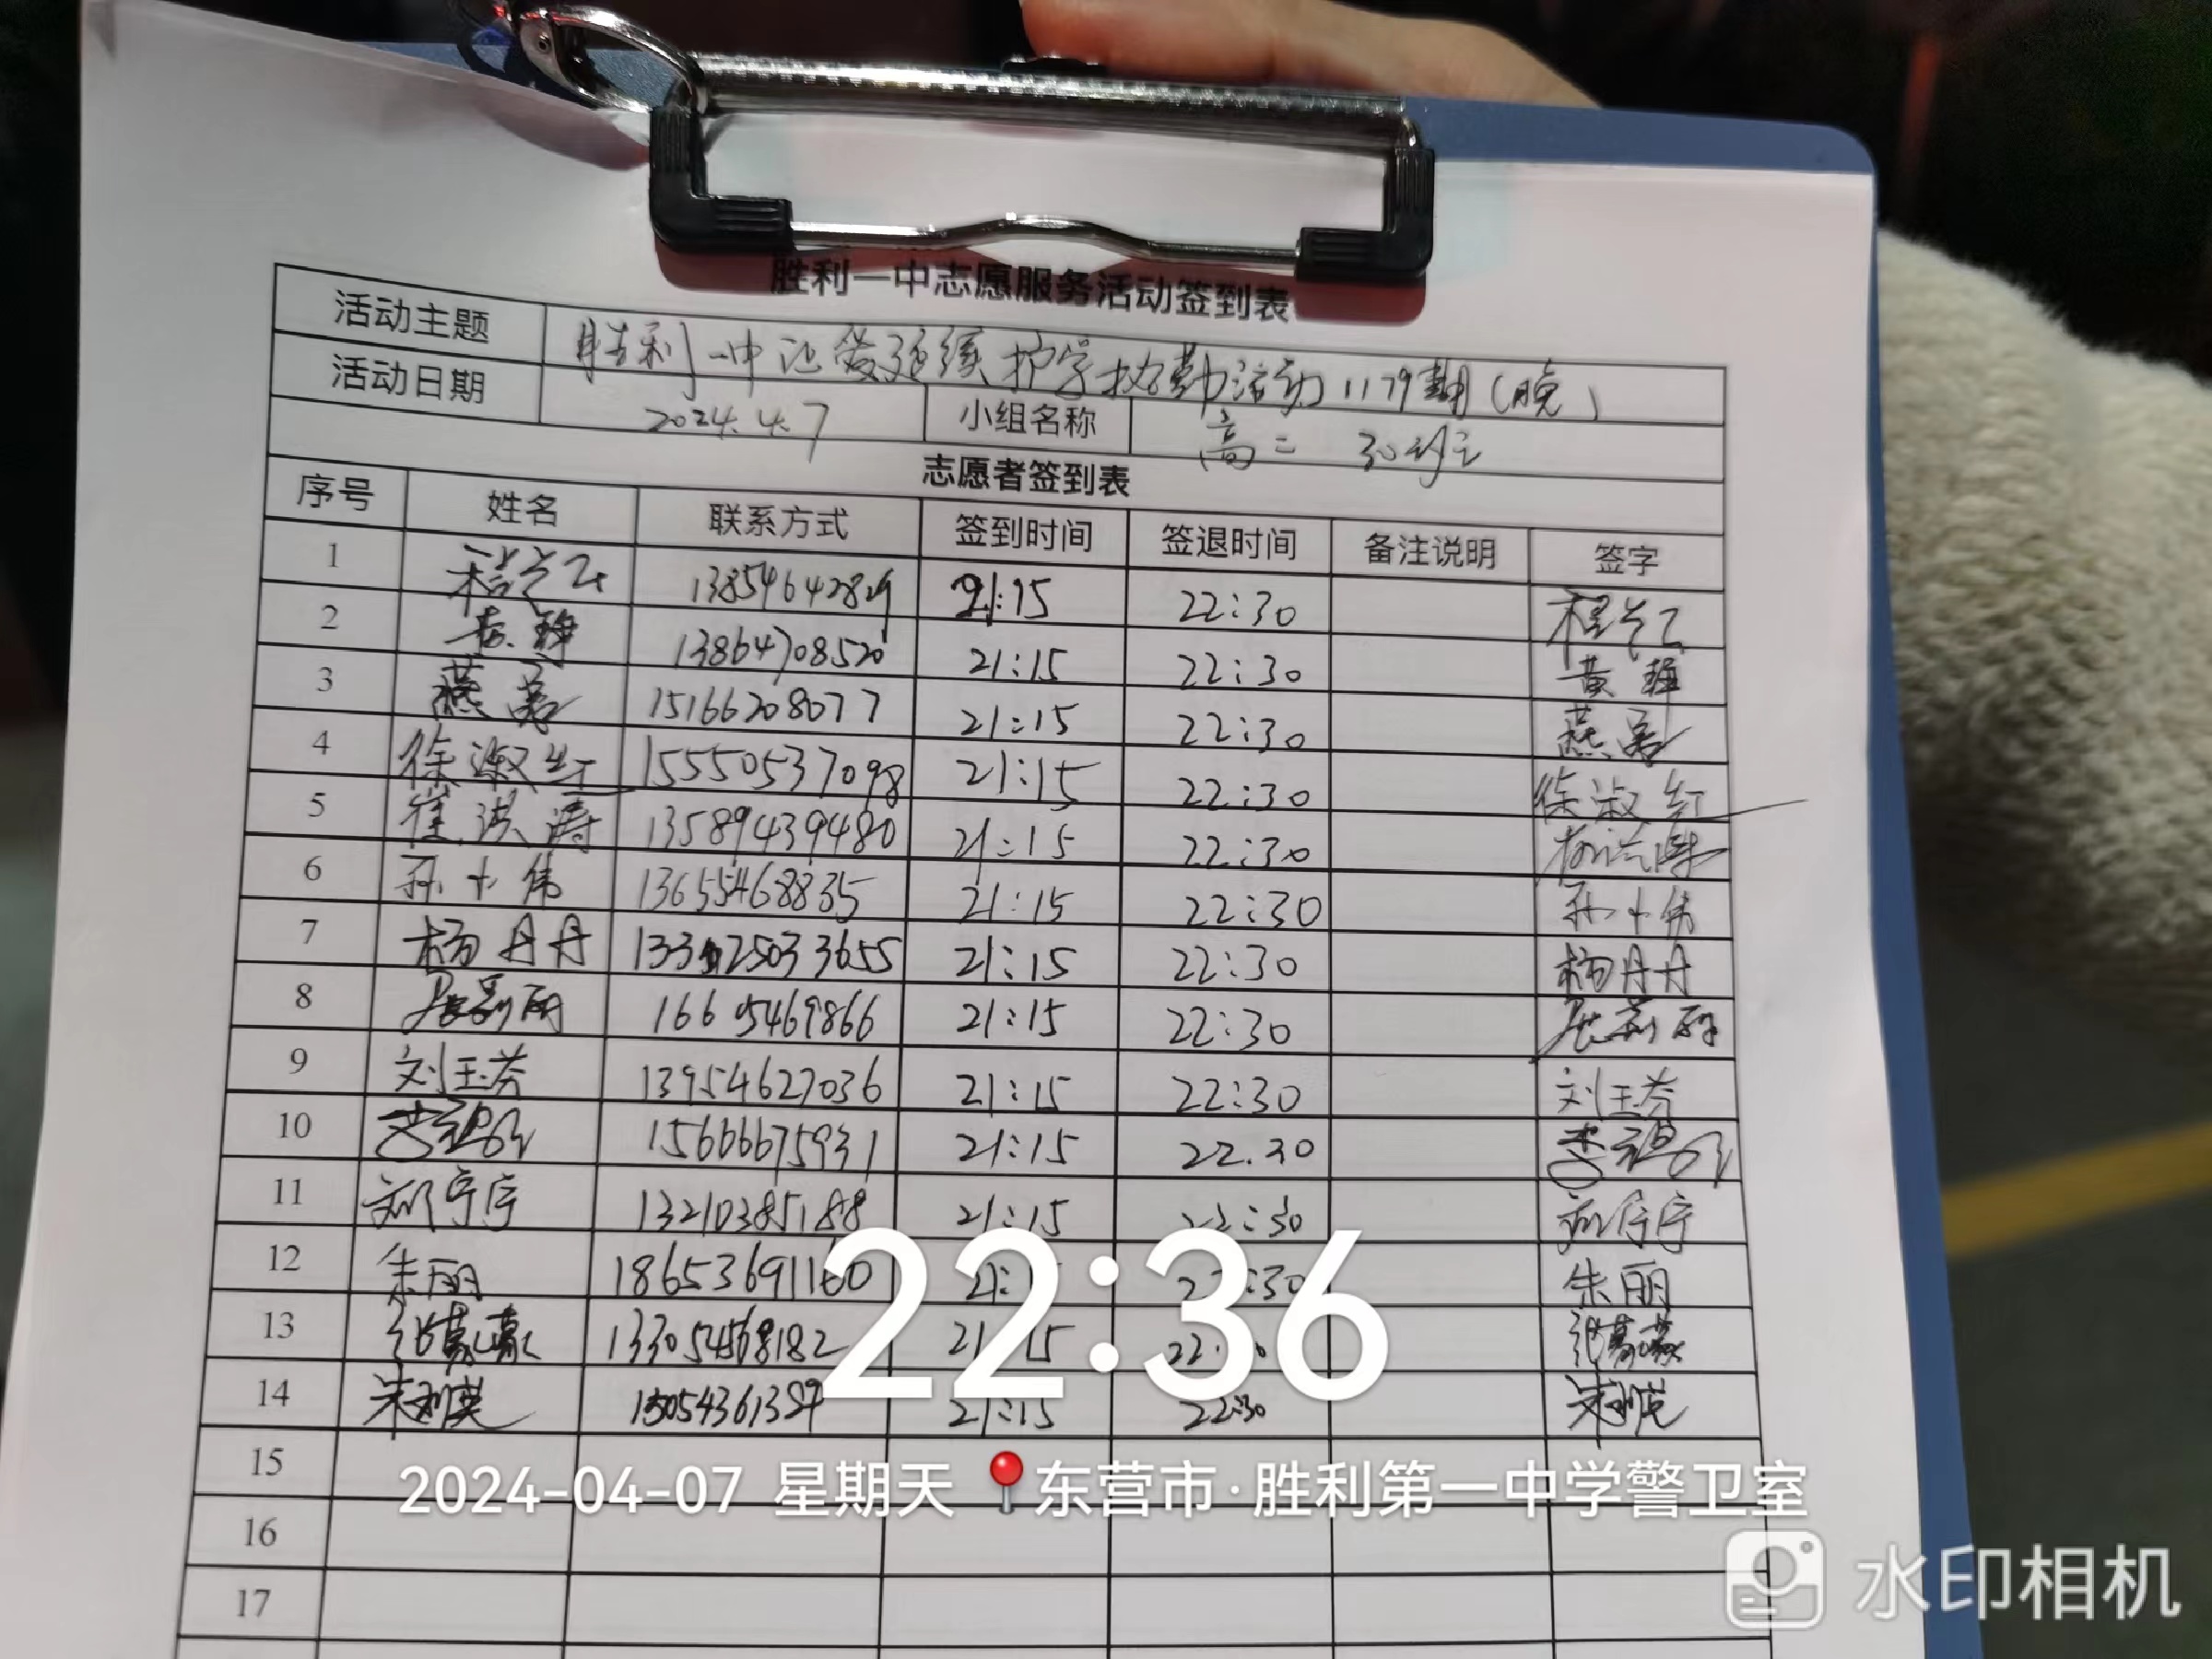 胜利一中志愿服务活动签到表
活动主题 胜利一中让爱延续护学执勤活动1179期(晚)
活动日期 2024.4.7 小组名称 高二 30班
志愿者签到表
序号 姓名 联系方式 签到时间 签退时间 备注说明 签字
1 21:15 22:30
2 黄 13864708520 21:15 22:30 黄
3 燕 15166208077 21:15 22:30 燕
4 徐淑红 15550537098 21:15 22:30 徐淑红
5 崔洪涛 13589439480 21:15 22:30
6 孙十伟 13655468835 21:15 22:30 孙十伟
7 杨丹丹 21:15 22:30 杨丹丹
8 16605469866 21:15 22:30
9 刘玉芬 13954627036 21:15 22:30 刘玉芬
10 15666675931 21:15 22.30 李
11 13210385188 21:15 22:30
12 朱丽 18653691160 21:15 22:30 朱丽
13 张 13305468182 21:15 张
14 21:15 22:30
15
16
17
22:36
2024-04-07 星期天 东营市·胜利第一中学警卫室
水印相机